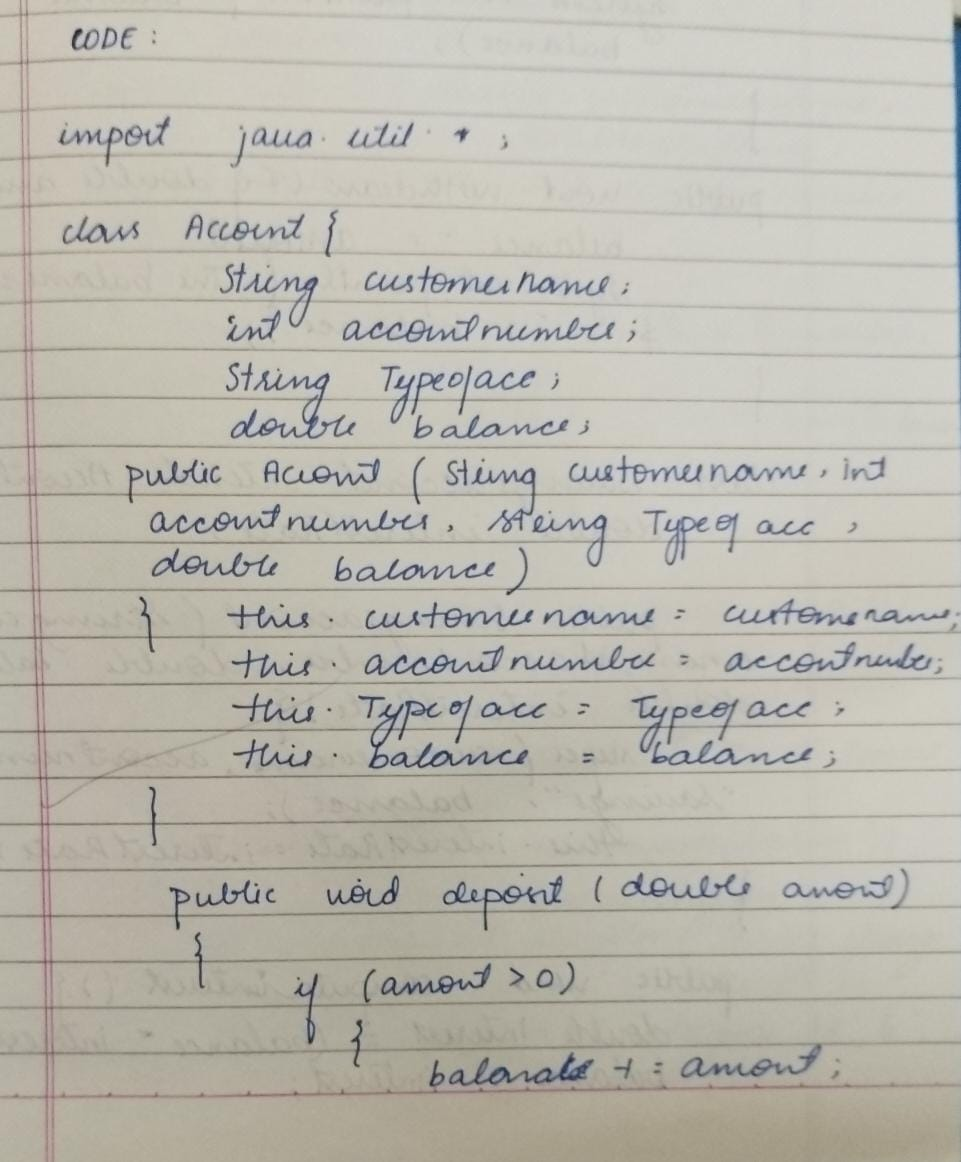 CODE :
import java.util.* ;
class Account {
String customername ;
int accountnumber ;
String Typeofacc ;
double balance ;
public Account ( String customername, int
accountnumber, String Typeof acc ,
double balance )
{ this. customername = customername;
this. accountnumber = accountnumber;
this. Typeofacc = Typeofacc ;
this. balance = balance ;
}
public void deposit ( double amount )
{
if (amount > 0)
{
balance += amount ;